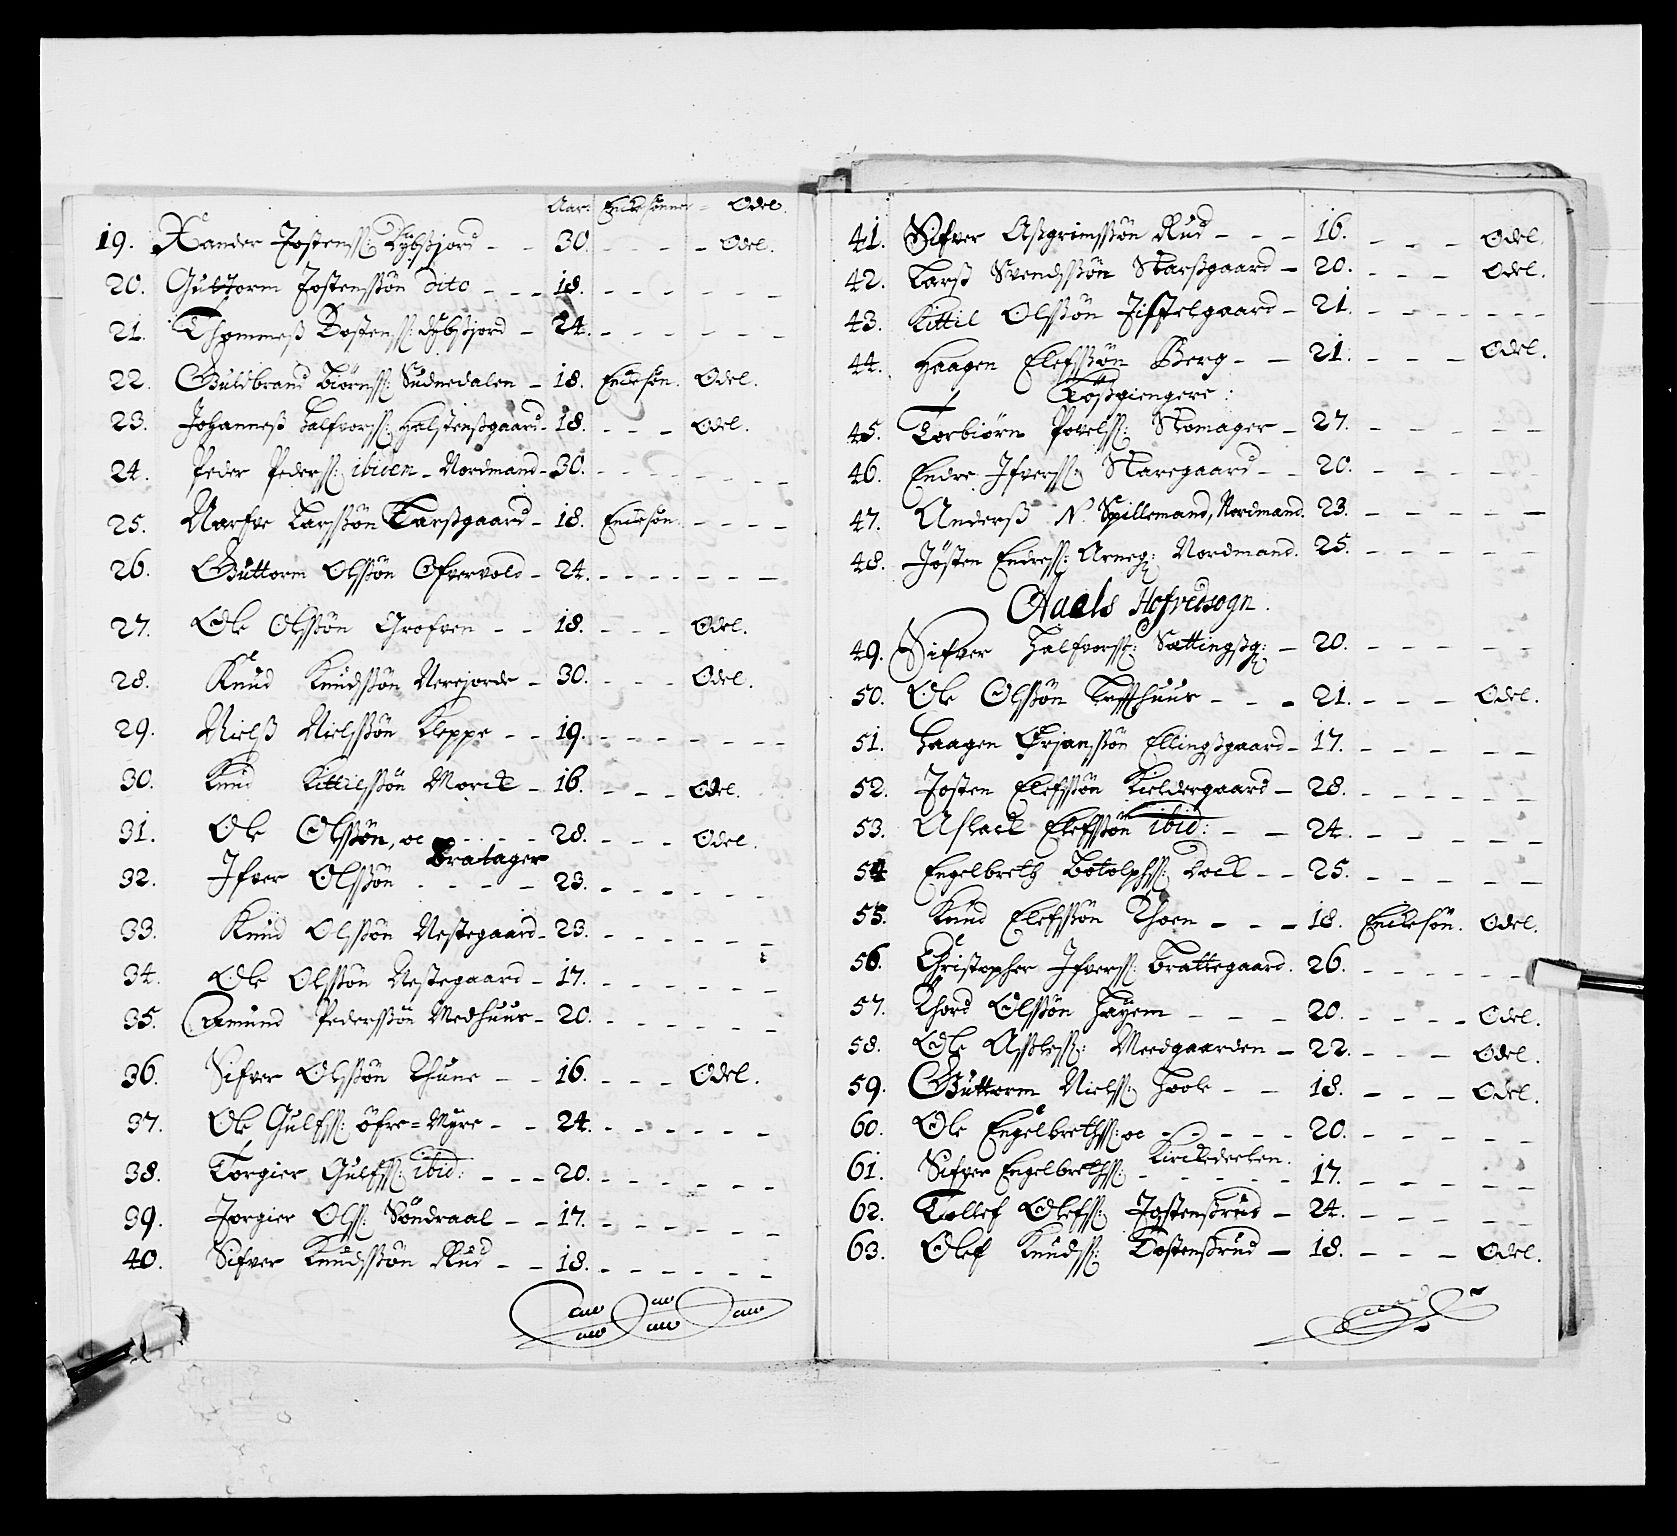 Aar: Enckesönner - Odel.
19. Xander Jostenss: Dybsjord - - 30. - - - - Odel.
20. Guttorm Jostenssön dito - - - 18. - - - - - -
21. Thommeß Tostenss: dybsjord - 24. - - - - - -
22. Guldbrand Biörnss: Sudnedalen - 18. Enckesön. Odel.
23. Johanneß Halfvorss: Halstensgaard - 18. - - - Odel.
24. Peder Pederss: ibiden - Nordmand - 30. - - - - - -
25. Narfve Larssön Larßgaard - 18. Enckesön. - - - -
26. Guttorm Olssön Ofvervold - 24. - - - - - - -
27. Ole Olssön Grofven - - 18. - - - Odel.
28. Knud Knudssön Nerejorde - 30. - - - Odel.
29. Nielß Nielssön Kleppe - - 19. - - - - - - -
30. Knud Kittilssön Morck - 16. - - - Odel.
31. Ole Olssön, oc - - - - 28. - - - Odel.
Bratager
32. Ifver Olssön - - - - - 23. - - - - - -
33. Knud Olssön Nestegaard - 23. - - - - - -
34. Ole Olssön Nestegaard - 17. - - - - - -
35. Amund Pederssön Medhuus - 20. - - - - - -
36. Sifver Olssön Thune - - 16. - - - Odel.
37. Ole Gulfss: öfre=Myre - - 24. - - - - - -
38. Torgier Gulfss: ibid: - - - 20. - - - - - -
39. Jorgier Olss: Söndraal - - 17. - - - - - -
40. Sifver Knudssön Rud - - 18. - - - - - -
41. Sifver Aßgrimssön Rud - - - 16. - - - Odel.
42. Larß Svendssön Narßgaard - 20. - - - Odel.
43. Kittil Olssön Jistelgaard - 21. - - - - - - -
44. Haagen Elefssön Berg - - 21. - - - Odel.
Lößgiengere:
45. Torbiörn Povelss: Nomager - 27. - - - - - -
46. Endre Ifverss: Naregaard - - 20. - - - - - -
47. Anderß N. Spillemand, Nordmand. 23. - - - - - -
48. Jösten Endress: Arneg: Nordmand. 25. - - - - - -
Aaels Hofvetsogn.
49. Sifver Halfvorss: Sættingßg: - 20. - - - - - -
50. Ole Olssön Tuffthuus - - - 21. - - - Odel.
51. Haagen Örjanssön Ellingßgaard - 17. - - - - -
52. Josten Elefssön Kieldergaard - 28. - - - - - -
53. Aslack Elefssön ibid: - - 24. - - - - - -
54 Engelbreth Botolphss: Lock - - 25. - - - - - -
55. Knud Elefssön Thoen - - - 18. Enckesön. Odel.
56. Christopher Ifverss: Brattegaard. 26. - - - - - -
57. Thord Olssön Hayem - - - 20. - - - - Odel.
58. Ole Aßless: Meedgaarden - 22. - - - Odel.
59. Guttorm Nielss: Hoole - - 18. - - - Odel.
60. Ole Engelbrethss: oc - - - - - 20. - - - - - -
Kirckedeelen.
61. Sifver Engelbrethss: - - - - - 17. - - - - - -
62. Tollef Olefss: Jostensrud - 24. - - - - - -
63. Olef Knudss: Tostensrud - 18. - - - Odel.